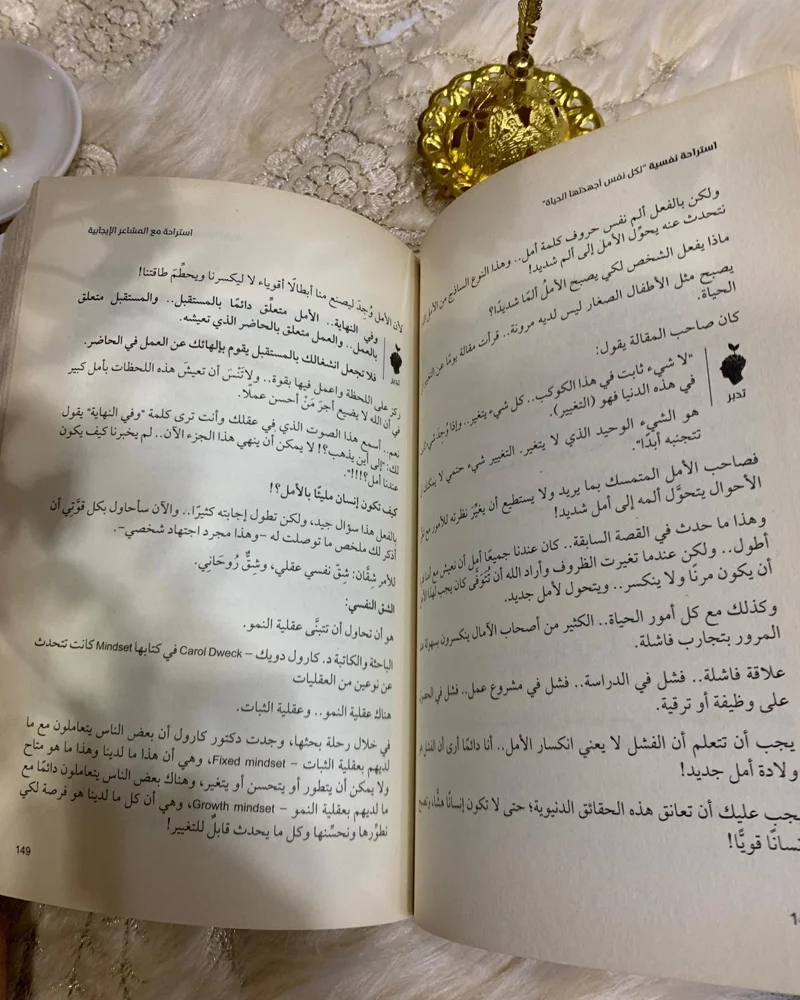 استراحة نفسية "لكل نفس أجهدتها الحياة"
ولكن بالفعل ألم نفس حروف كلمة أمل.. وهذا النوع الساذج من الأمل
نتحدث عنه يحوِّل الأمل إلى ألم شديد!
ماذا يفعل الشخص لكي يصبح الأملُ ألمًا شديدًا؟
يصبح مثل الأطفال الصغار ليس لديه مرونة.. قرأت مقالة يومًا عن التغيير
الحياة.
كان صاحب المقالة يقول:
"لا شيء ثابت في هذا الكوكب.. كل شيء يتغير.. وإذا وُجد شيء
في هذه الدنيا فهو (التغيير).
تدبر
هو الشيء الوحيد الذي لا يتغير. التغيير شيء حتمي لا يمكنك
تتجنبه أبدًا".
فصاحب الأمل المتمسك بما يريد ولا يستطيع أن يغيِّر نظرته للأمور مع
الأحوال يتحوَّل ألمه إلى أمل شديد!
وهذا ما حدث في القصة السابقة.. كان عندنا جميعًا أمل أن نعيش مع
أطول.. ولكن عندما تغيرت الظروف وأراد الله أن تُتَوَفَّى كان يجب لهذا
أن يكون مرنًا ولا ينكسر.. ويتحول لأمل جديد.
وكذلك مع كل أمور الحياة.. الكثير من أصحاب الآمال ينكسرون بسهولة
المرور بتجارب فاشلة.
علاقة فاشلة.. فشل في الدراسة.. فشل في مشروع عمل.. فشل في
على وظيفة أو ترقية.
يجب أن تتعلم أن الفشل لا يعني انكسار الأمل.. أنا دائمًا أرى أن الفشل
ولادة أمل جديد!
يجب عليك أن تعانق هذه الحقائق الدنيوية؛ حتى لا تكون إنسانًا هشًّا،
إنسانًا قويًّا!
استراحة مع المشاعر الإيجابية
لأن الأمل وُجِدَ ليصنع منا أبطالًا أقوياء لا ليكسرنا ويحطِّمَ طاقتنا!
وفي النهاية.. الأمل متعلِّق دائمًا بالمستقبل.. والمستقبل متعلق
بالعمل.. والعمل متعلق بالحاضر الذي تعيشه.
تدبر
فلا تجعل انشغالك بالمستقبل يقوم بإلهائك عن العمل في الحاضر.
ركز على اللحظة واعمل فيها بقوة.. ولا تَنْسَ أن تعيشَ هذه اللحظات بأمل كبير
في أن الله لا يضيع أجرَ مَنْ أحسن عملًا.
نعم.. أسمع هذا الصوت الذي في عقلك وأنت ترى كلمة "وفي النهاية" يقول
لك: "إلى أين يذهب؟! لا يمكن أن ينهي هذا الجزء الآن.. لم يخبرنا كيف يكون
عندنا أمل؟!!!".
كيف تكون إنسان مليئًا بالأمل؟!
بالفعل هذا سؤال جيد، ولكن تطول إجابته كثيرًا.. والآن سأحاول بكل قوَّتِي أن
أذكر لك ملخص ما توصلت له –وهذا مجرد اجتهاد شخصي–.
للأمر شِقَّان: شِقّ نفسي عقلي، وشِقٌّ رُوحَانِي.
الشق النفسي:
هو أن تحاول أن تتبنَّى عقلية النمو.
الباحثة والكاتبة د. كارول دويك – Carol Dweck في كتابها Mindset كانت تتحدث
عن نوعين من العقليات
هناك عقلية النمو.. وعقلية الثبات.
في خلال رحلة بحثها، وجدت دكتور كارول أن بعض الناس يتعاملون مع ما
لديهم بعقلية الثبات – Fixed mindset، وهي أن هذا ما لدينا وهذا ما هو متاح
ولا يمكن أن يتطور أو يتحسن أو يتغير، وهناك بعض الناس يتعاملون دائمًا مع
ما لديهم بعقلية النمو – Growth mindset، وهي أن كل ما لدينا هو فرصة لكي
نطوِّرها ونحسِّنها وكل ما يحدث قابلٌ للتغيير!
149